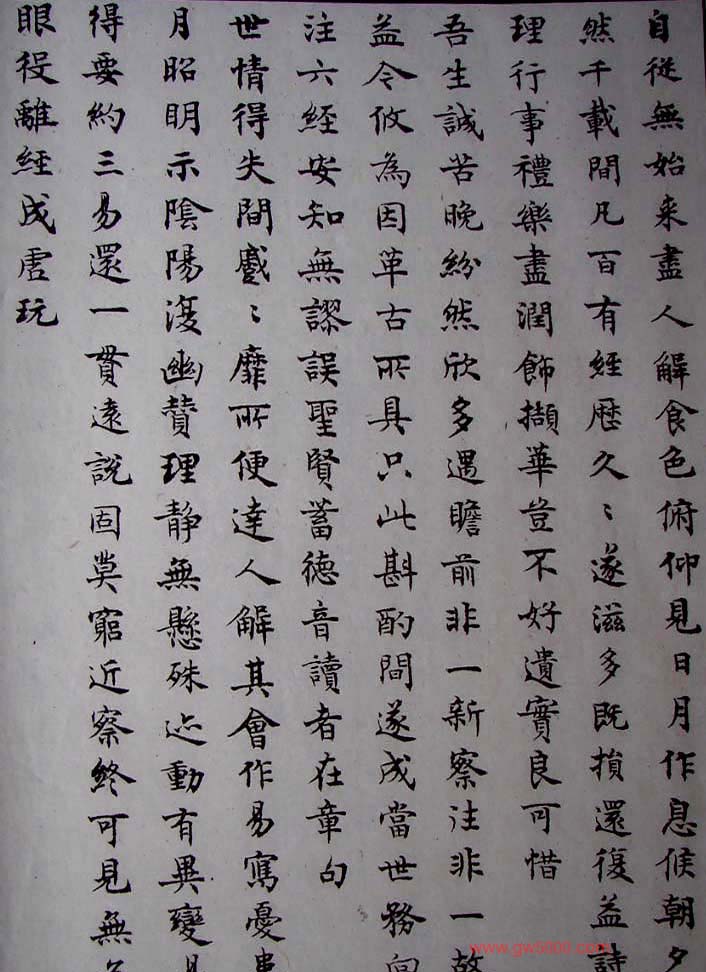 自從無始来盡人解食色俯仰見日月作息候朝夕
然千載間凡百有經歴久〻遂滋多既損還復益詩
理行事禮樂盡潤飾擷華豈不好遺實良可惜
吾生誠苦晚紛然欣多遇瞻前非一新察注非一故
益令攸為因革古所具只此斟酌間遂成當世務向
注六經安知無謬誤聖賢蓄德音讀者在章句
世情得失間靡所便達人解其會作易寫憂患
月昭明示陰陽復幽賛理静無懸殊迹動有異變
得要約三易還一貫遠說固莫窮近察終可見無
眼役離經成虛玩